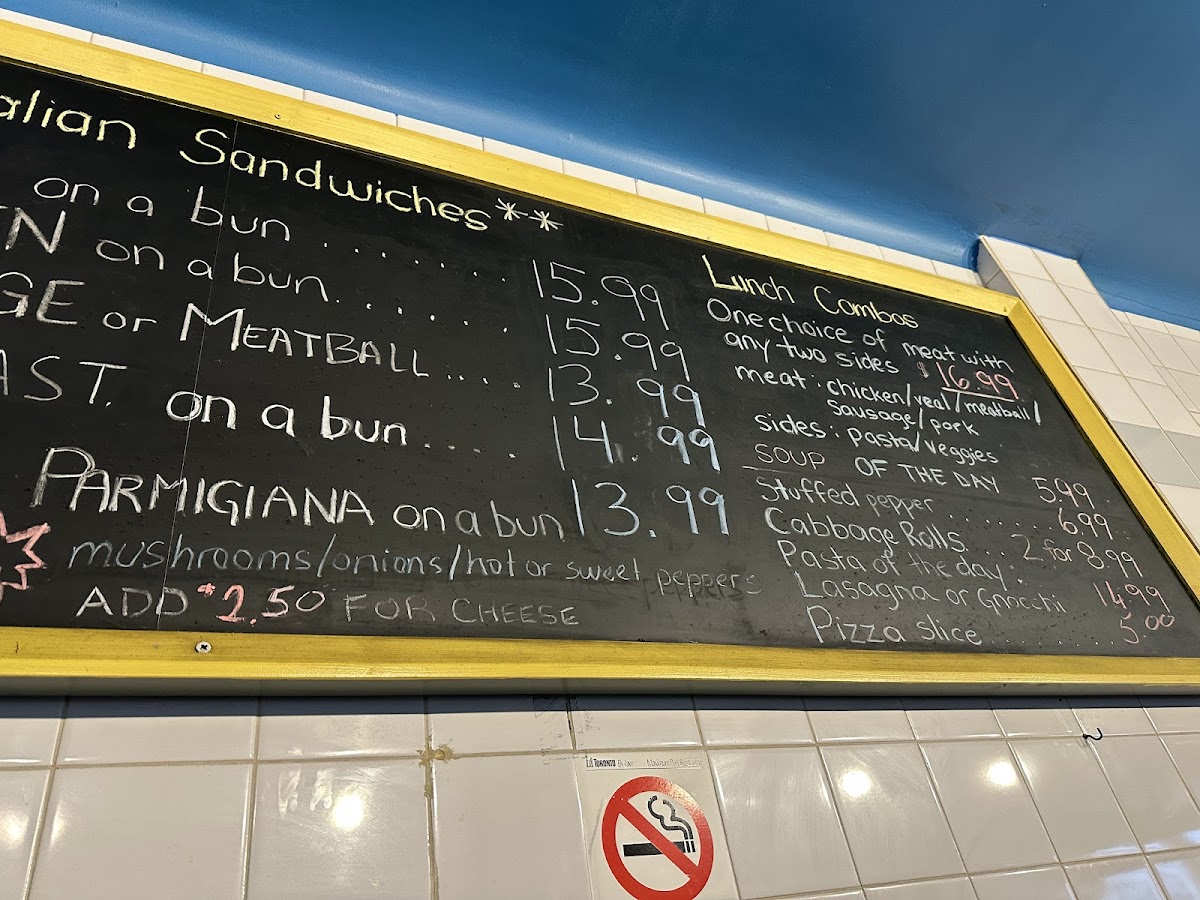 alian Sandwiches**
on a bun ....... 15.99
EN on a bun....... 15.99
GE or MEATBALL .... 13.99
AST. on a bun .... 14.99
PARMIGIANA on a bun 13.99
mushrooms/onions/hot or sweet peppers
ADD *2.50 FOR CHEESE
Lunch Combos
One choice of meat with
any two sides $16.99
meat: chicken/veal/meatball/
sausage/pork
sides: pasta/veggies
SOUP OF THE DAY 5.99
Stuffed pepper ....... 6.99
Cabbage Rolls... 2 for 8.99
Pasta of the day:
Lasagna or Gnocchi 14.99
Pizza slice ........ 5.00
TORONTO